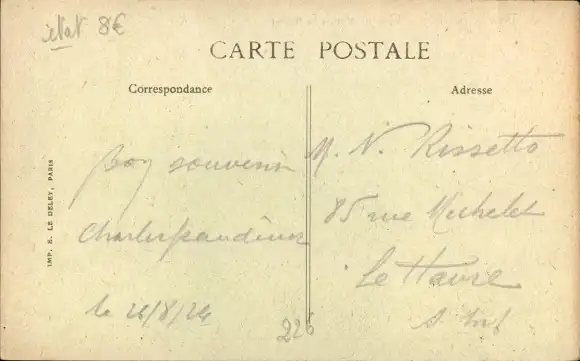 état 8€
CARTE POSTALE
Correspondance
Adresse
IMP. E. LE DELEY, PARIS
Bon souvenir
Charles
le 26/8/24
M. N. Rissetto
85 rue Michelet
Le Havre
S. Inf
226